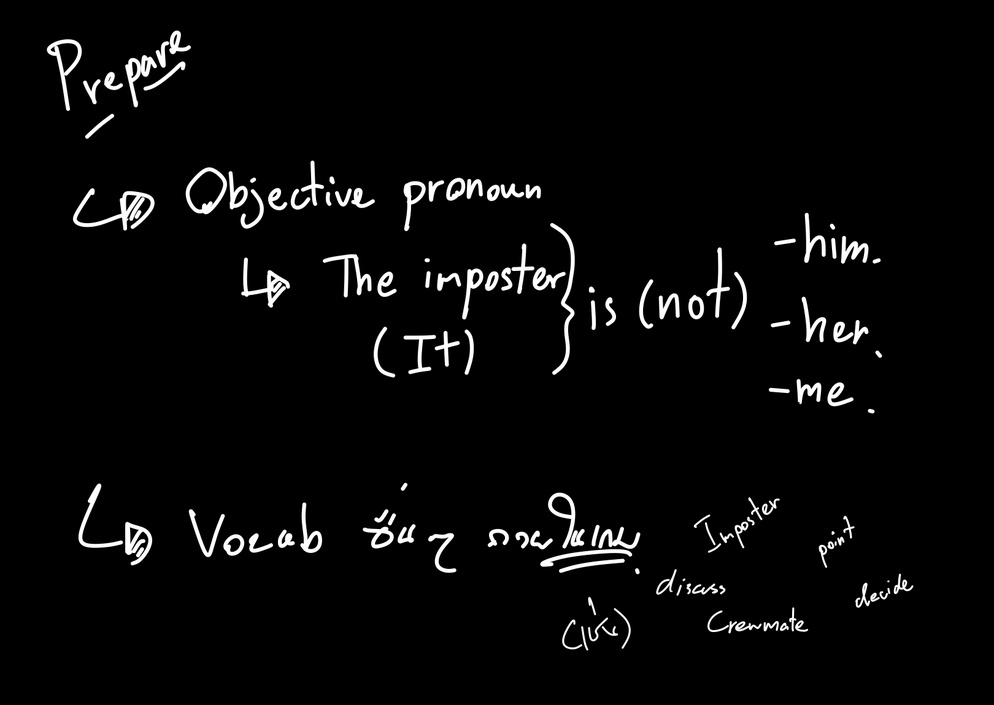 Prepare
Objective pronoun
The imposter
(It)
is (not)
-him.
-her.
-me.
Vocab อื่นๆ
Imposter
point
discuss
decide
Crewmate